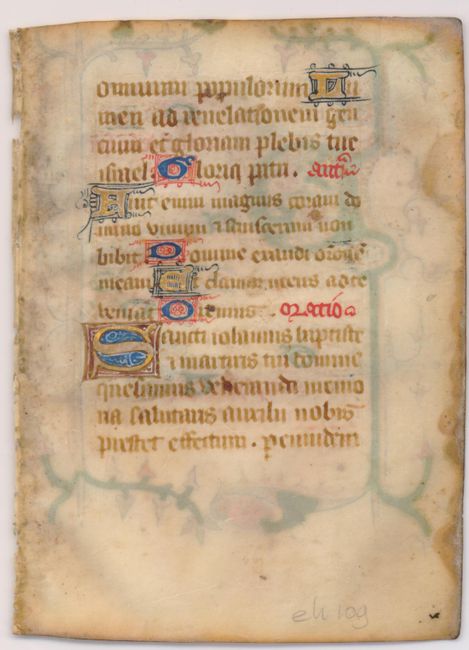 omnium populorum Lu
men ad revelationem gen
cium et gloriam plebis tue
israel Gloria patri. Antiph.
Erit enim magnus coram do
mino vinum et siceram non
bibit Domine exaudi orōnē
meam Et clamor meus ad te
veniat Oremus. Oratio
Sancti iohannis baptiste
et martiris tui domine
quesumus veneranda memo
ria salutaris auxilii nobis
prestet effectum. per eiusdem
eh 109